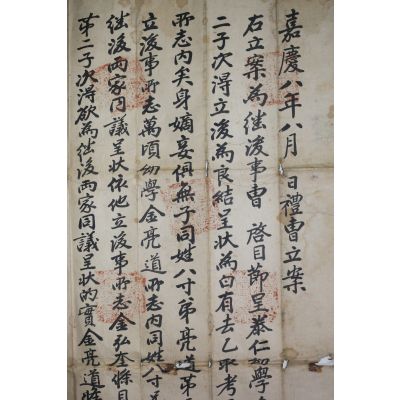 嘉慶八年八月 日禮曹立案
右立案為継後事曹 啓目節呈泰仁幼學
二子次淂立後為良結呈狀為白有去乙取考
所志內矣身嫡妾俱無子同姓八寸弟亮道第
立後事所志萬頃幼學金亮道所志內同姓八寸
継後兩家同議呈狀依他立後事所志金弘奎條目
第二子次淂欲為継後兩家同議呈狀的實金亮道